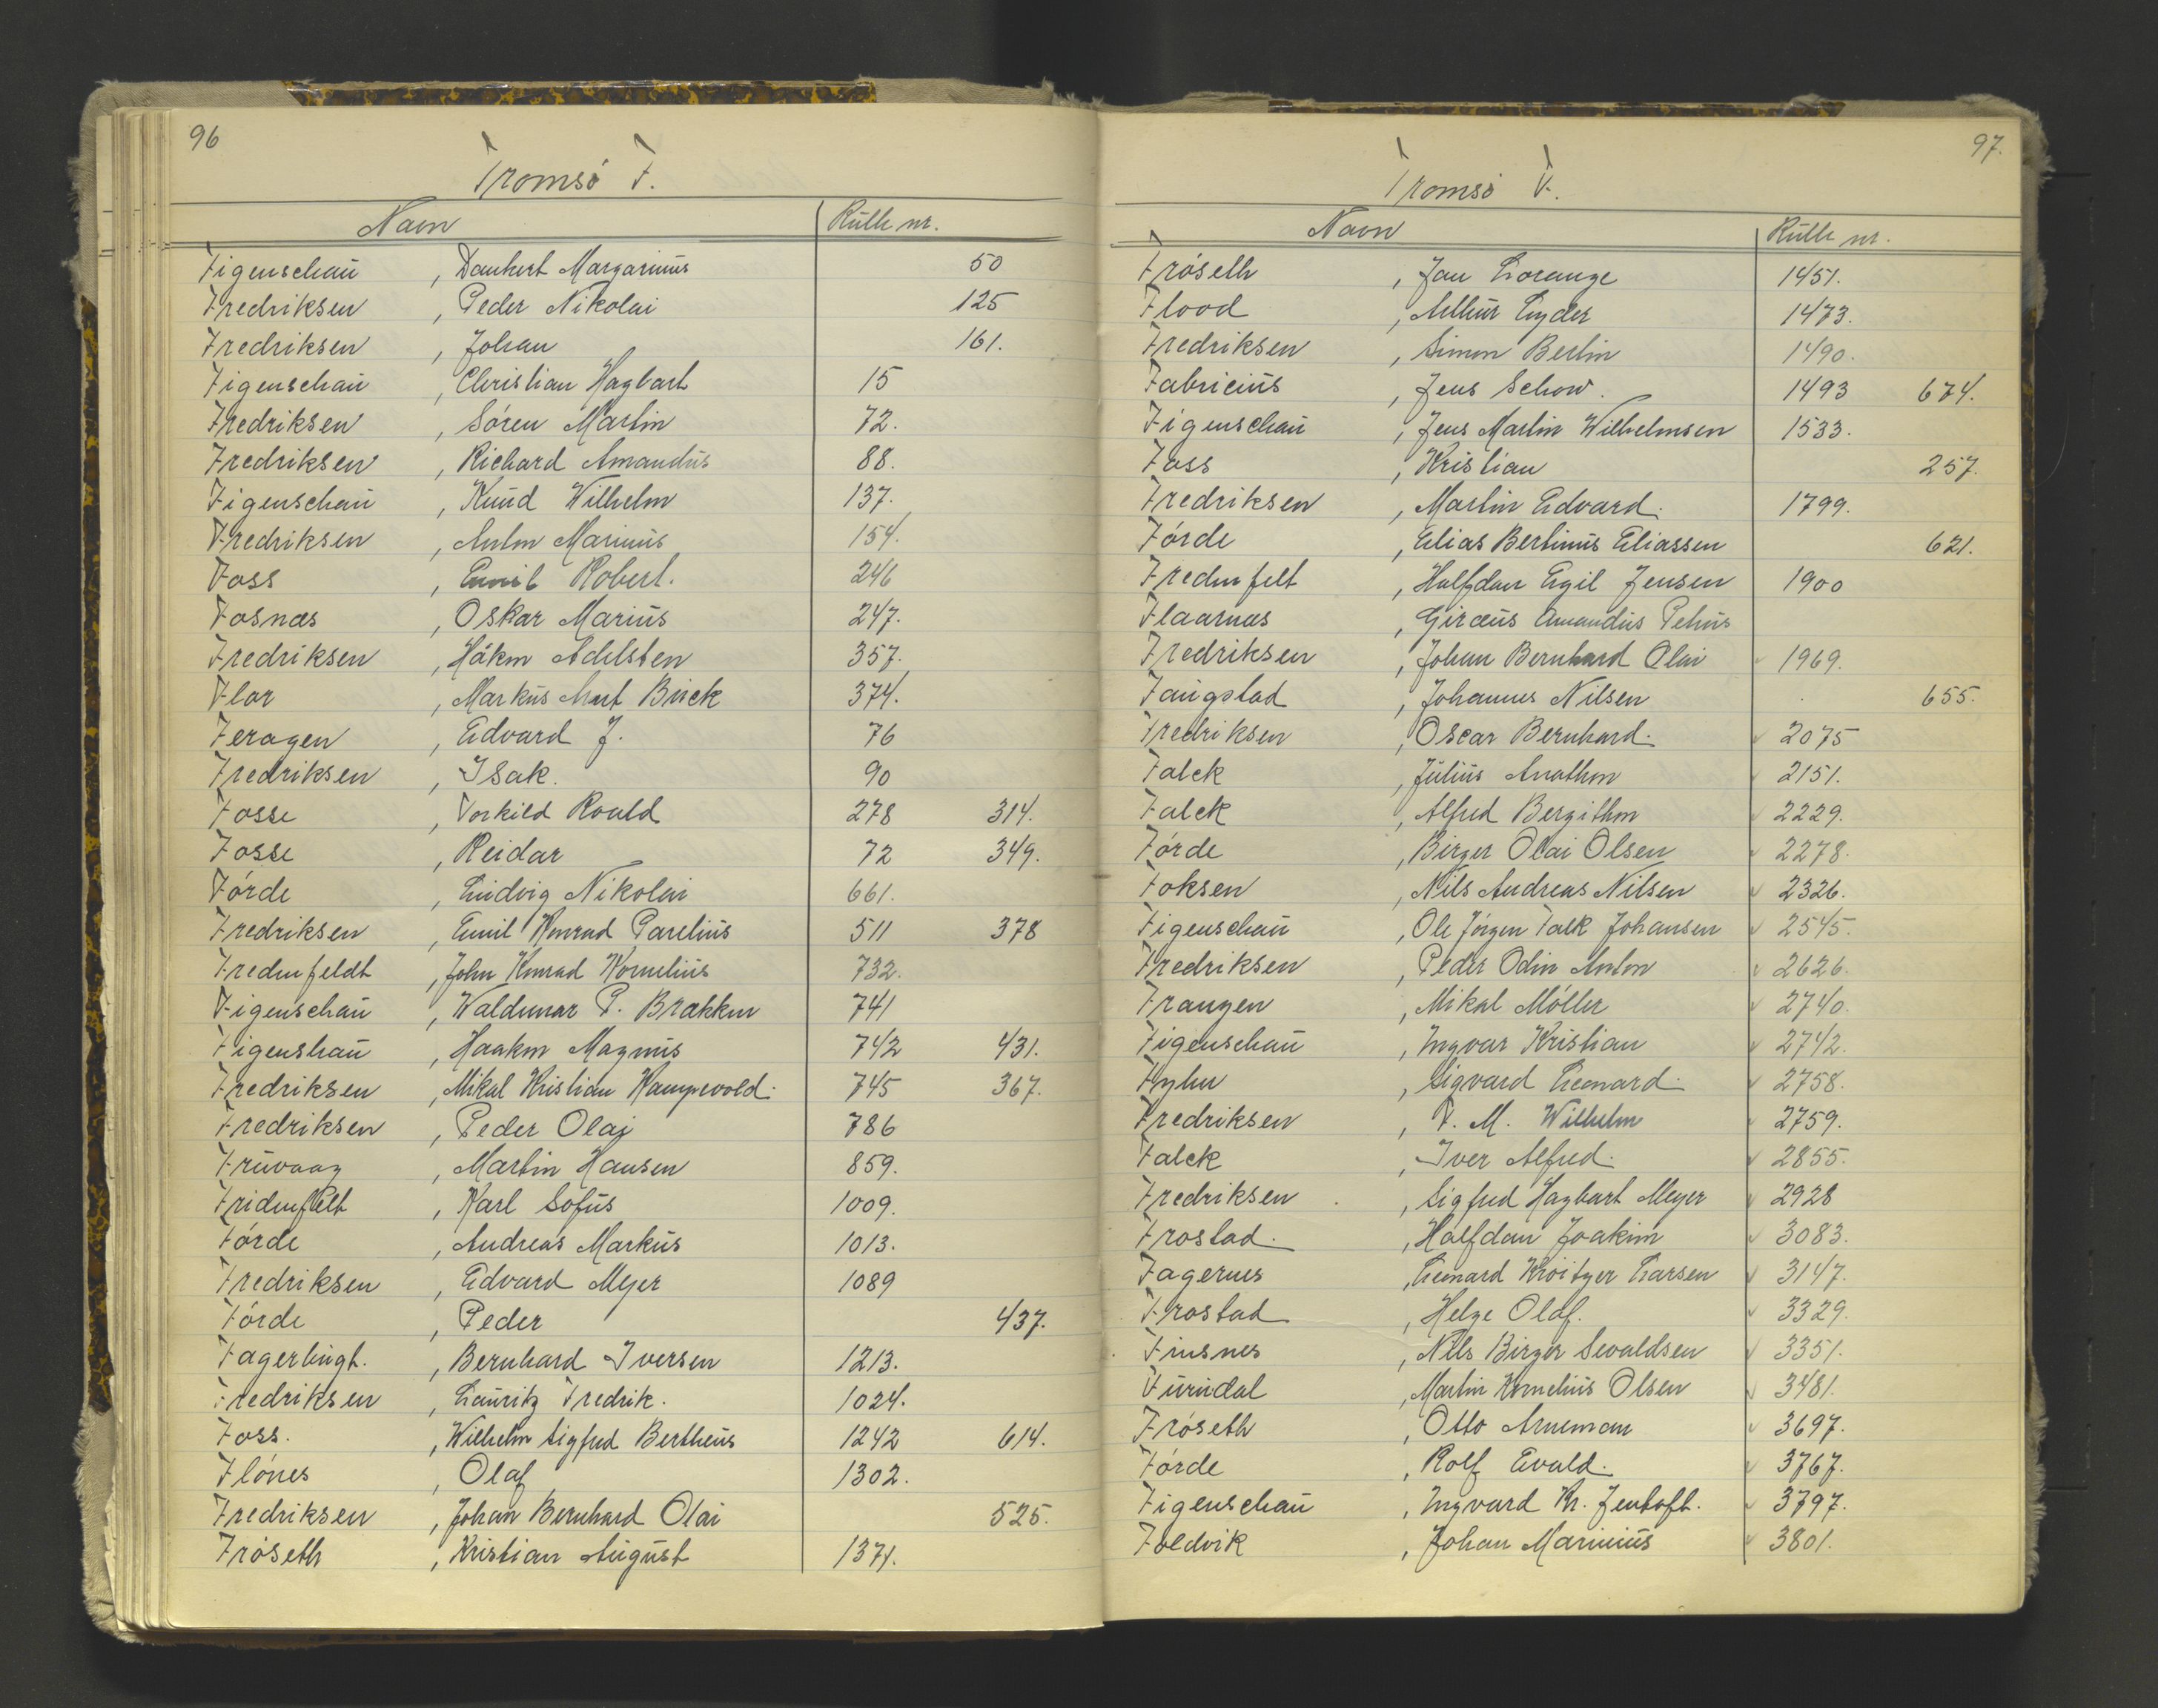 96
Tromsö F.
Navn Rulle nr.
Figenschau , Dankert Margarinus 50
Fredriksen , Peder Nikolai 125
Fredriksen , Johan 161.
Figenschau , Christian Hagbart 15
Fredriksen , Sören Martin 72.
Fredriksen , Richard Amandus 88.
Figenschau , Knud Wilhelm 137.
Fredriksen , Anton Marinus 154.
Foss , Emil Robert. 246
Fosnæs , Oskar Marius 247.
Fredriksen , Håkon Adelsten 357.
Flor , Markus Buck 374.
Feragen , Edvard J. 76
Fredriksen , Isak. 90
Fosse , Torkild Roald 278 314.
Fosse , Reidar 72 349.
Förde , Ludvig Nikolai 661.
Fredriksen , Emil Konrad Parelius 511 378
Fredenfeldt , John Konrad Kornelius 732.
Figenschau , Waldemar P. Brækken 741
Figenshau , Haakon Magnus 742 431.
Fredriksen , Mikal Kristian Kampevold. 745 367.
Fredriksen , Peder Olai 786
Fruvaag , Martin Hansen 859.
Fridenfelt , Karl Sofus 1009.
Förde , Andreas Markus 1013.
Fredriksen , Edvard Meyer 1089
Förde , Peder 437.
Fagerhugt. , Bernhard Iversen 1213.
Fredriksen , Lauritz Fredrik. 1024.
Foss. , Wilhelm Sigfred Bertheus 1242 614.
Flönes , Olaf 1302.
Fredriksen , Johan Bernhard Olai 525.
Fröseth , Kristian August 1371.
97.
Tromsö F.
Navn Rulle nr.
Fröseth , Jan Lorange 1451.
Flood , Arthur Eyder 1473.
Fredriksen , Simon Bertin 1490.
Fabricius , Jens Schow. 1493 674.
Figenschau , Jens Martin Wilhelmsen 1533.
Foss , Kristian 257.
Fredriksen , Martin Edvard. 1799.
Förde , Elias Bertinus Eliassen 621.
Fredenfelt , Halfdan Egil Jensen 1900
Flaarnæs , Giræus Amandus Petrus
Fredriksen , Johan Bernhard Olai 1969.
Faugstad , Johannes Nilsen 655.
Fredriksen , Oscar Bernhard. 2075
Falck , Julius Anathon 2151.
Falck , Alfred Bergithon 2229.
Förde , Birger Olai Olsen 2278.
Foksen , Nils Andreas Nilsen 2326.
Figenschau , Ole Jörgen Falk Johansen 2545.
Fredriksen , Peder Odin Anton 2626.
Frangen , Mikal Möller 2740.
Figenschau , Ingvar Kristian 2742.
Fyhn , Sigvard Leonard. 2758.
Fredriksen , F. M. Wilhelm 2759.
Falck , Iver Alfred. 2855.
Fredriksen , Sigfred Hagbart Meyer 2928
Frostad. , Halfdan Joakim 3083.
Fagernes , Leonard Kroitzer Larsen 3147.
Frostad , Helge Olaf. 3329.
Finsnes , Nils Birger Sevaldsen 3351.
Furudal , Martin Kornelius Olsen 3481.
Fröseth , Otto Arneman 3697.
Förde , Rolf Evald. 3767.
Figenschau , Ingvard Kr. Jentoft. 3797.
Foldvik , Johan Marinius 3801.